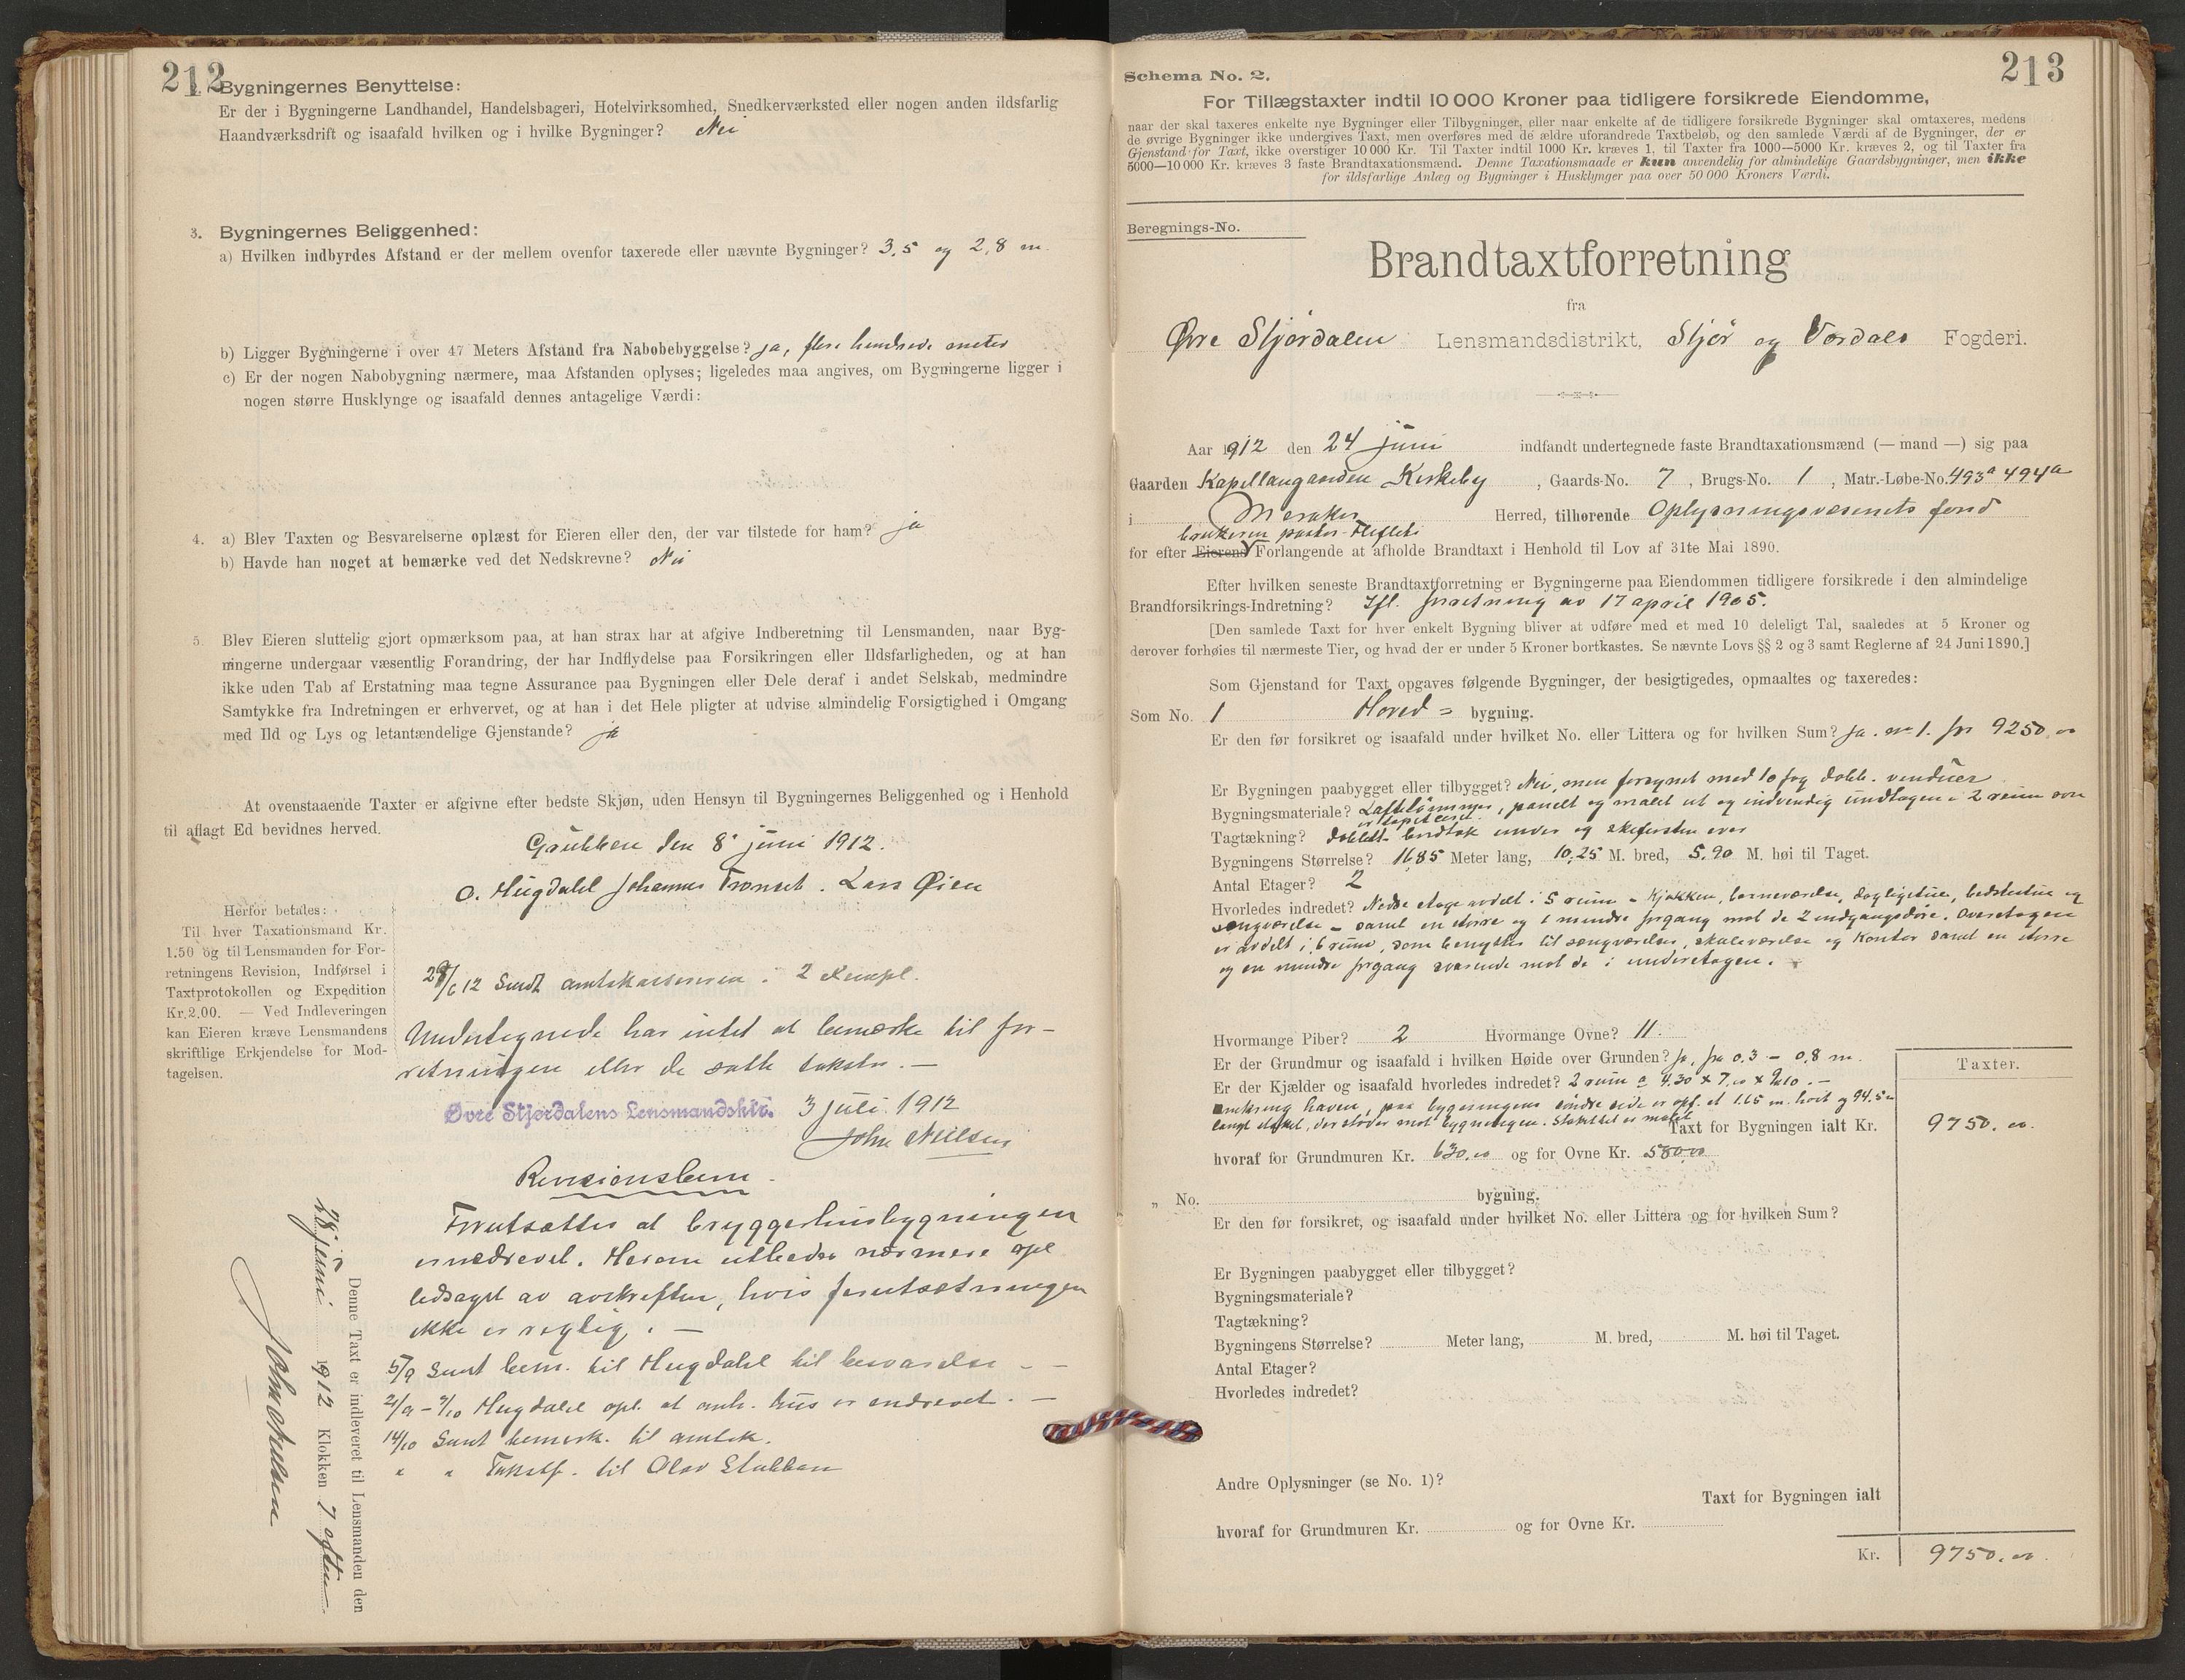 212
Bygningernes Benyttelse:
Er der i Bygningerne Landhandel, Handelsbageri, Hotelvirksomhed, Snedkerværksted eller nogen anden ildsfarlig
Haandværksdrift og isaafald hvilken og i hvilke Bygninger? Nei
3. Bygningernes Beliggenhed:
a) Hvilken indbyrdes Afstand er der mellem ovenfor taxerede eller nævnte Bygninger? 3,5 og 2,8 m.
b) Ligger Bygningerne i over 47 Meters Afstand fra Nabobebyggelse? ja, flere hundrede meter
c) Er der nogen Nabobygning nærmere, maa Afstanden oplyses; ligeledes maa angives, om Bygningerne ligger i
nogen større Husklynge og isaafald dennes antagelige Værdi:
4. a) Blev Taxten og Besvarelserne oplæst for Eieren eller den, der var tilstede for ham? ja
b) Havde han noget at bemærke ved det Nedskrevne? Nei
5. Blev Eieren sluttelig gjort opmærksom paa, at han strax har at afgive Indberetning til Lensmanden, naar Byg-
ningerne undergaar væsentlig Forandring, der har Indflydelse paa Forsikringen eller Ildsfarligheden, og at han
ikke uden Tab af Erstatning maa tegne Assurance paa Bygningen eller Dele deraf i andet Selskab, medmindre
Samtykke fra Indretningen er erhvervet, og at han i det Hele pligter at udvise almindelig Forsigtighed i Omgang
med Ild og Lys og letantændelige Gjenstande? ja
At ovenstaaende Taxter er afgivne efter bedste Skjøn, uden Hensyn til Bygningernes Beliggenhed og i Henhold
til aflagt Ed bevidnes herved.
Grubben den 8 juni 1912.
O. Hugdahl Johannes Tronset. Lars Øien
Herfor betales:
Til hver Taxationsmand Kr.
1.50 og til Lensmanden for For-
retningens Revision, Indførsel i
Taxtprotokollen og Expedition
Kr. 2.00. — Ved Indleveringen
kan Eieren kræve Lensmandens
skriftlige Erkjendelse for Mod-
tagelsen.
28/6 12 Sendt amtskassereren i 2 Exempl.
Undertegnede har intet at bemerke til for-
retningen eller de satte takster. —
Øvre Stjørdalens Lensmandsktr. 3 juli 1912
John Nielsen
Revisionsbem.
Forutsættes at bryggerhusbygningen
er nedrevet. Herom utbedes nærmere opl.
ledsaget av avskriften, hvis forutsætningen
ikke er rigtig. —
5/9 Sendt bem. til Hugdahl til besvarelse - -
21/9 - 7/10 Hugdahl opl. at anh. hus er nedrevet. —
14/10 Sendt bemerk. til amtsk.
" " Takstf. til Olav Stubban
Denne Taxt er indleveret til Lensmanden den
28 juni 1912 Klokken 7 eften
John Nielsen
213
Schema No. 2.
For Tillægstaxter indtil 10 000 Kroner paa tidligere forsikrede Eiendomme,
naar der skal taxeres enkelte nye Bygninger eller Tilbygninger, eller naar enkelte af de tidligere forsikrede Bygninger skal omtaxeres, medens
de øvrige Bygninger ikke undergives Taxt, men overføres med de ældre uforandrede Taxtbeløb, og den samlede Værdi af de Bygninger, der er
Gjenstand for Taxt, ikke overstiger 10 000 Kr. Til Taxter indtil 1000 Kr. kræves 1, til Taxter fra 1000—5000 Kr. kræves 2, og til Taxter fra
5000—10 000 Kr. kræves 3 faste Brandtaxationsmænd. Denne Taxationsmaade er kun anvendelig for almindelige Gaardsbygninger, men ikke
for ildsfarlige Anlæg og Bygninger i Husklynger paa over 50 000 Kroners Værdi.
Beregnings-No.
Brandtaxtforretning
fra
Øvre Stjørdalen Lensmandsdistrikt, Stjør og Værdals Fogderi.
Aar 1912 den 24 juni indfandt undertegnede faste Brandtaxationsmænd (— mand —) sig paa
Gaarden Kapellangaarden Kirkeby, Gaards-No. 7, Brugs-No. 1, Matr.-Løbe-No. 493a 494a
i Meraker Herred, tilhørende Oplysningsvæsenets fond
brukeren pastor
for efter Eierens Forlangende at afholde Brandtaxt i Henhold til Lov af 31te Mai 1890.
Efter hvilken seneste Brandtaxtforretning er Bygningerne paa Eiendommen tidligere forsikrede i den almindelige
Brandforsikrings-Indretning? Ifl. forretning av 17 april 1905.
[Den samlede Taxt for hver enkelt Bygning bliver at udføre med et med 10 deleligt Tal, saaledes at 5 Kroner og
derover forhøies til nærmeste Tier, og hvad der er under 5 Kroner bortkastes. Se nævnte Lovs §§ 2 og 3 samt Reglerne af 24 Juni 1890.]
Som Gjenstand for Taxt opgaves følgende Bygninger, der besigtigedes, opmaaltes og taxeredes:
Som No. 1 Hoved = bygning.
Er den før forsikret og isaafald under hvilket No. eller Littera og for hvilken Sum? Ja. No 1. for 9250,00
Er Bygningen paabygget eller tilbygget? Nei, men forsynet med 10 fag dobb. vinduer
Bygningsmateriale? Laftetømmer, panelt og malet ut og indvendig undtagen i 2 rum som
er tapetseret.
Tagtækning? dobbelt bordtak under og skifersten over
Bygningens Størrelse? 16,85 Meter lang, 10,25 M. bred, 5,90 M. høi til Taget.
Antal Etager? 2
Hvorledes indredet? Nedre etage avdelt i 5 rum - Kjøkken, barneværelse, dagligstue, bedstestue og
sengværelse - samt en større og 1 mindre forgang mot de 2 indgangsdøre. Overetagen
er avdelt i 6 rum, som benyttes til sengværelser, skoleværelse og Kontor samt en større
og en mindre forgang svarende mot de i underetagen.
Hvormange Piber? 2 Hvormange Ovne? 11.
Er der Grundmur og isaafald i hvilken Høide over Grunden? Ja, fra 0,3 - 0,8 m.
Er der Kjælder og isaafald hvorledes indredet? 2 rum a 4.30 x 7,00 x 2,10. -
omkring haven, paa bygningens søndre side er opf. et 1.15 m. høit og 94.5 m
langt stakit, der støder mot bygningen. Stakittet er malet
Taxter.
Taxt for Bygningen ialt Kr. 9750.00.
hvoraf for Grundmuren Kr. 630,00 og for Ovne Kr. 580,00
" No. bygning.
Er den før forsikret, og isaafald under hvilket No. eller Littera og for hvilken Sum?
Er Bygningen paabygget eller tilbygget?
Bygningsmateriale?
Tagtækning?
Bygningens Størrelse? Meter lang, M. bred, M. høi til Taget.
Antal Etager?
Hvorledes indredet?
Andre Oplysninger (se No. 1)?
Taxt for Bygningen ialt
hvoraf for Grundmuren Kr. og for Ovne Kr.
Kr. 9750.00.